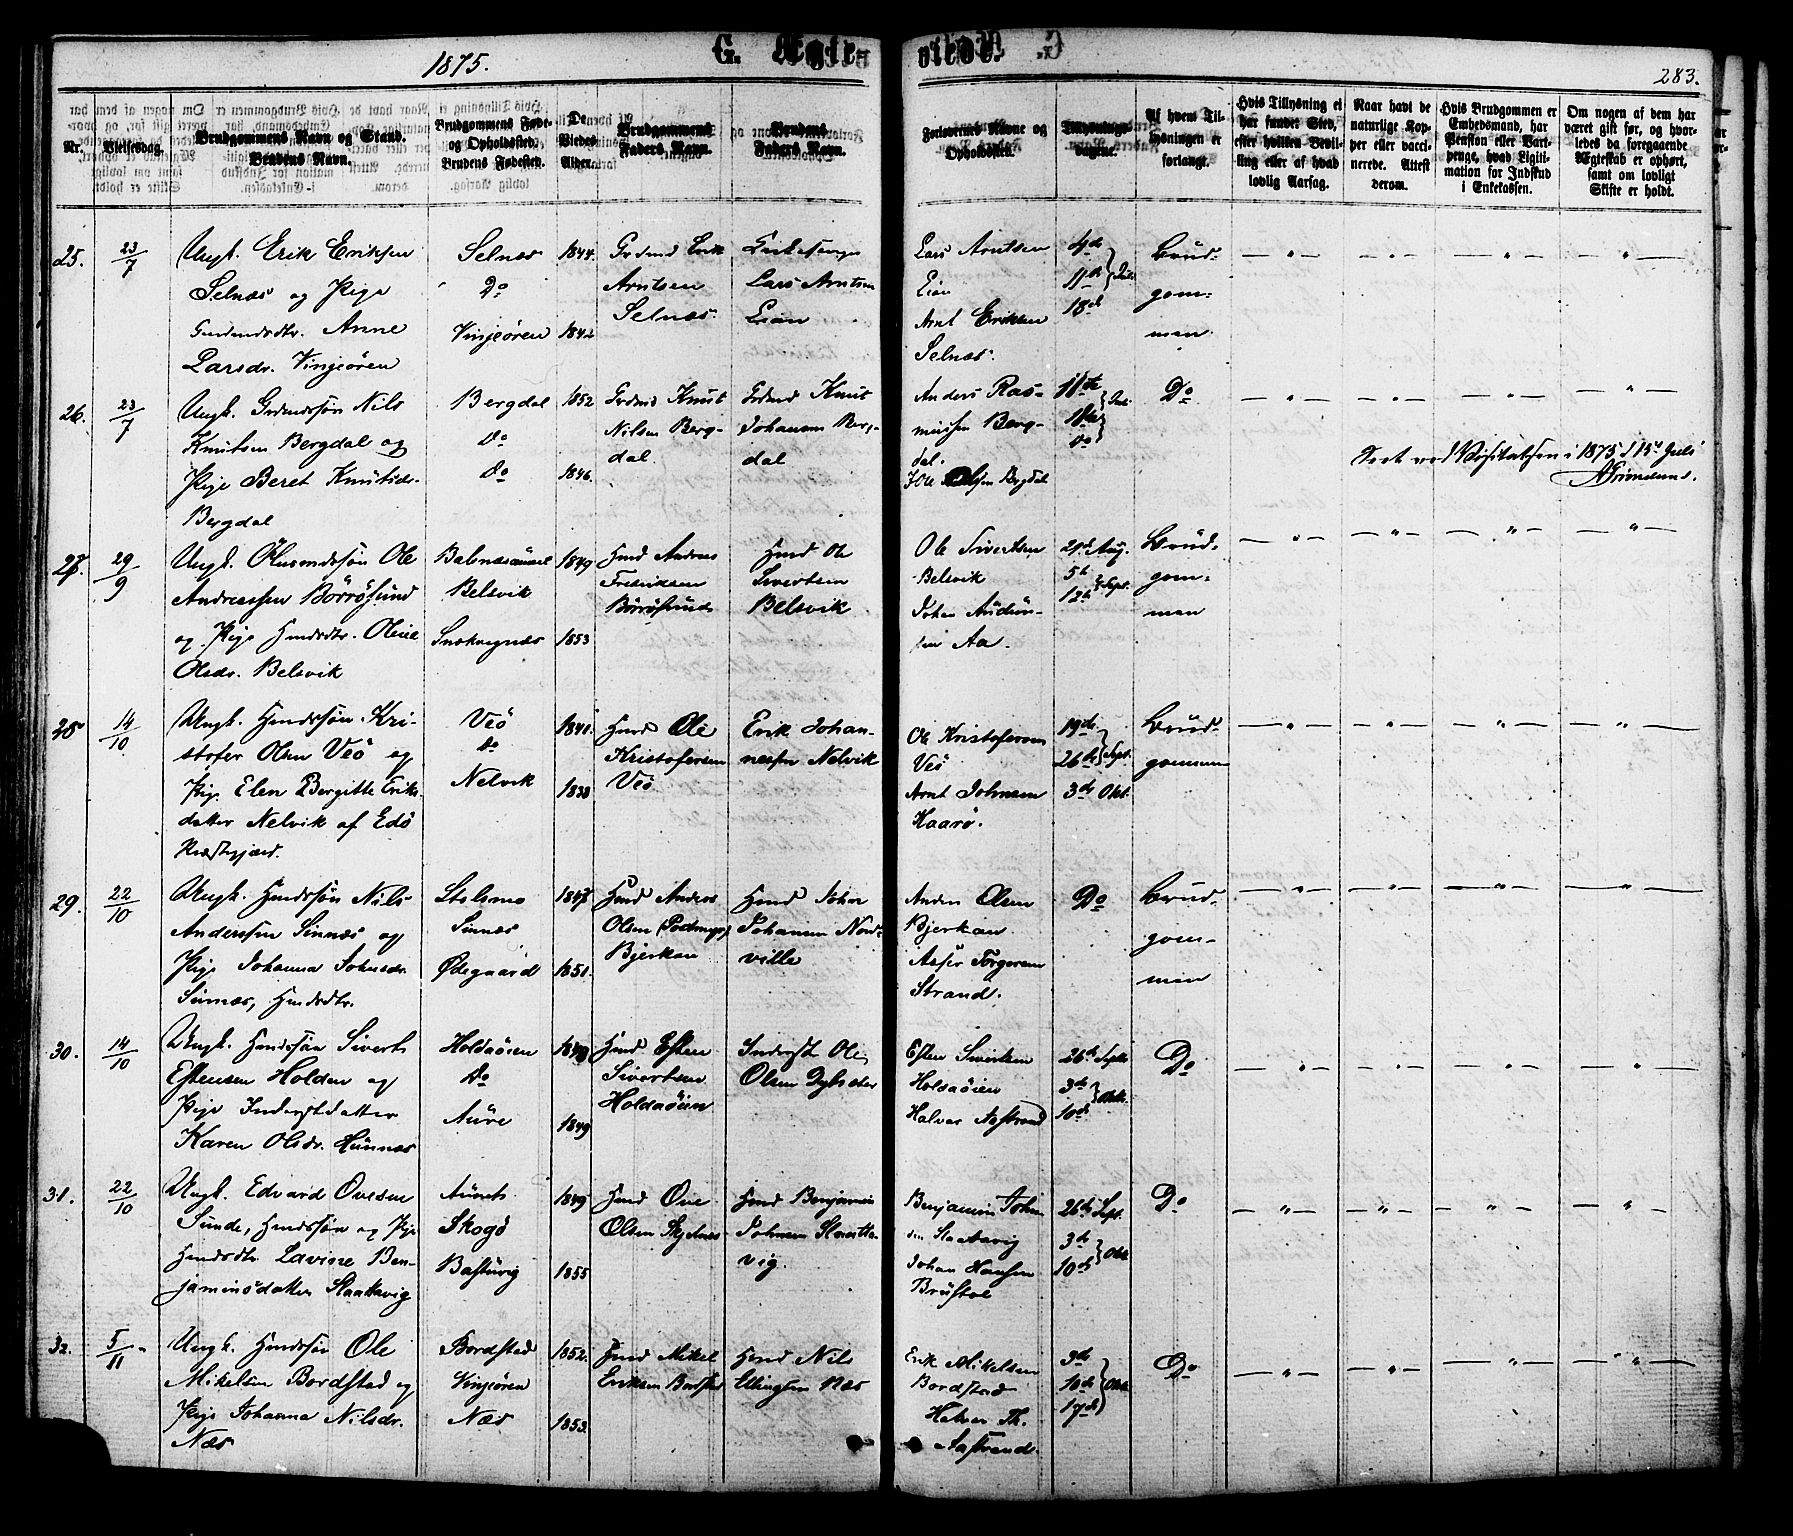 1875.
G. Ægte-
viede.
283.
Nr.
Vielsesdag.
Brudgommens Navn og Stand.
Brudens Navn.
Brudgommens Føde-
og Opholdssted.
Brudens Fødested.
De
Viedes
Alder.
Brudgommens
Faders Navn.
Brudens
Faders Navn.
Forlovernes Navne og
Opholdssted.
Tillysnings-
dagene.
Af hvem Til-
lysningen er
forlangt.
Hvis Tillysning ei
har fundet Sted,
efter hvilken Bevil-
ling eller af hvad
lovlig Aarsag.
Naar havt de
naturlige Kop-
per eller vacci-
nerede. Attest
derom.
Hvis Brudgommen er
Embedsmand, har
Pension eller Vart-
penge, hvad Ligiti-
mation for Indskud
i Enkekassen.
Om nogen af dem har
været gift før, og hvor-
ledes da foregaaende
Ægteskab er ophørt,
samt om lovligt
Skifte er holdt.
25.
23/7
Ungk. Erik Eriksen
Selnæs og Pige
Anne
Larsdr. Vinjeören
Selnæs
Do
Vinjeören
1844.
1842
Erik
Arntsen
Selnæs
Lars Arntsen
Eian
Lars Arntsen
Eian
Arnt Eriksen
Selnæs.
4de
11te
18de
Juli
Brud-
gom-
men.
26.
23/7
Ungk. Nils
Knutsen Bergdal og
Pige Beret Knutsdr.
Bergdal
Bergdal
Do
Do
1852
1846.
Knut
Nilsen Berg-
dal.
Knut
Johansen Berg-
dal
Anders Ras-
mussen Berg-
dal.
Bergdal
11te
18de
Do
Juli
Do
Seet ved Visitatsen i 1875 d. 15de Juli
27.
29/9
Ungk. Ole
Andreassen Börrösund
og Pige Oline
Olsdr. Belsvik
Belsvik
1849
1853
Hmd Andreas
Fredriksen
Börrösund
Hmd Ole
Sivertsen
Belsvik
Ole Sivertsen
Belsvik
Johan
sen Aa
Aug.
5te
12te
Sept.
Brud-
gom-
men
28
14/10
Ungk. Hmdssön Kri-
stofer Olsen Veö og
Pige Elen Bergitte Eriks-
datter Nelvik af Edö
Præstegjæld.
Veö
Do
Nelvik
1841.
1838
Hmd Ole
Kristofersen
Veö
Erik Johan-
nessen Nelvik
Ole Kristofersen
Veö
Arnt Johnsen
Kaarö.
19de
26de Sept.
3de Okt.
Brud-
gommen
29.
22/10
Ungk. Hmdssön Nils
Anderssen Sinnæs og
Pige Johanna Johnsdr.
Sinnæs, Hmdsdtr.
Stolsmo
Sinnæs
Ødegaard
1847
1851.
Hmd Anders
Olsen
Bjerkan
Hmd Johan
Johansen Nord-
ville
Anders Olsen
Bjerkan
Torgersen
Strand.
Do
Brud-
gom-
men
30.
14/10
Ungk. Hmdssön Sivert
Estensen Holden og
Pige Inderstdatter
Karen Olsdr. Hunnæs
Holdaöien
Do
Aure
1849
Hmd Esten
Sivertsen
Holdaöien
Inderst Ole
Olsen
Esten Sivertsen
Holdaöien
Halvor Aastrand
26de Sept.
3de
10de
Okt.
Do
31.
22/10
Ungk. Edvard Ovesen
Sunde, Hmdssön og Pige
Hmdsdtr. Lavine Ben-
jaminsdatter Slaattavig
Skogö
Bastuvig
1849
1855
Hmd Ove
Olsen
Hmd Benjamin
Johnsen Slaatta-
vig.
Benjamin John-
sen Slaattavig
Johan Hansen
Brustöl
26de Sept.
3de
10de
Okt.
Do
32.
5/11
Ungk. Hmdssön Ole
Mikelsen Bordstad og
Pige Johanna Nilsdr.
Næs
Bordstad
Vinjeören
Næs
1852.
1853.
Hmd Mikel
Eriksen Bordstad
Hmd Nils
Ellingsen Næs
Erik Mikelsen
Bordstad
Halvor Th.
Aastrand.
3de
10de
17de
Okt.
Do